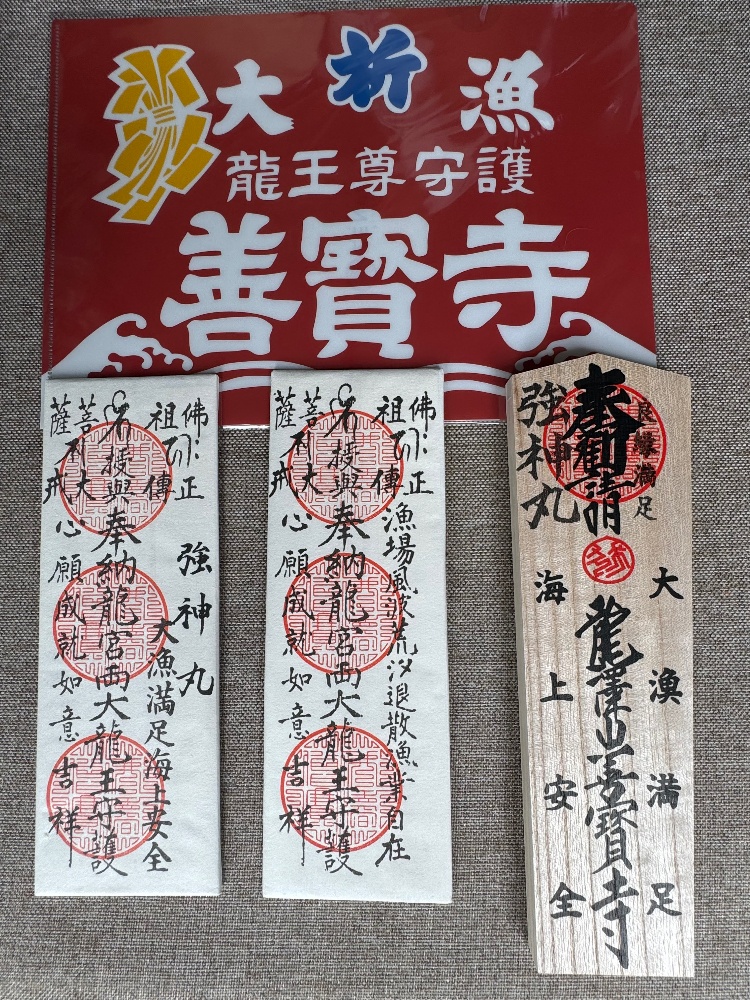 祈
大漁
龍王尊守護
善寶寺
佛祖正傳
強神丸
大漁満足海上安全
授與奉納龍宮両大龍王守護
菩薩大戒
心願成就如意吉祥
佛祖正傳
漁場風波荒汐退散漁業自在
授與奉納龍宮両大龍王守護
菩薩大戒
心願成就如意吉祥
良縁満足
大漁満足
奉勧請
龍澤山善寶寺
強神丸
海上安全